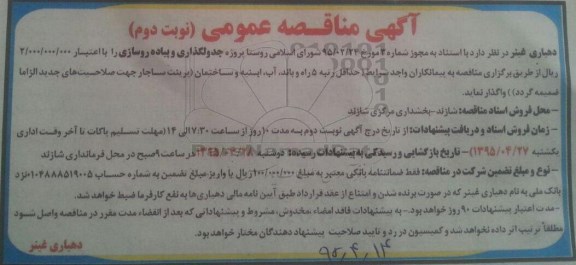 آگهی مناقصه عمومی (نوبت دوم)
دهیاری غینر در نظر دارد با استناد به مجوز شماره 3 مورخ 95/02/22 شورای اسلامی روستا پروژه جدولگذاری و پیاده روسازی را با اعتبار 2/000/000/000
ریال از طریق برگزاری مناقصه به پیمانکاران واجد شرایط (حداقل رتبه 5 راه و باند، آب، ابنیه و ساختمان (پرینت ساجار جهت صلاحیت‌های جدید الزاما
ضمیمه گردد)) واگذار نماید.
- محل فروش اسناد مناقصه: شازند -بخشداری مرکزی شازند
- زمان فروش اسناد و دریافت پیشنهادات: از تاریخ درج آگهی نوبت دوم به مدت 10 روز از ساعت 7/30 الی 14 (مهلت تسلیم پاکات تا آخر وقت اداری
یکشنبه 1395/04/27) - تاریخ بازگشایی و رسیدگی به پیشنهادات رسیده: دوشنبه در ساعت 9 صبح در محل فرمانداری شازند
- نوع و مبلغ تضمین شرکت در مناقصه: فقط ضمانتنامه بانکی معتبر به مبلغ ریال یا واریز مبلغ تضمین به شماره حساب 0104888519005 نزد
بانک ملی به نام دهیاری غینر که در صورت برنده شدن و امتناع از عقد قرارداد طبق آیین نامه مالی دهیاری‌ها به نفع کارفرما ضبط خواهد شد.
- مدت اعتبار پیشنهادات 90 روز خواهد بود.- به پیشنهادات فاقد امضاء مخدوش، مشروط و پیشنهاداتی که بعد از انقضاء مدت مقرر در مناقصه واصل شود
مطلقاً ترتیب اثر داده نخواهد شد و کمیسیون در رد و تایید صلاحیت پیشنهاد دهندگان مختار خواهد بود.
دهیاری غینر
95,4,14